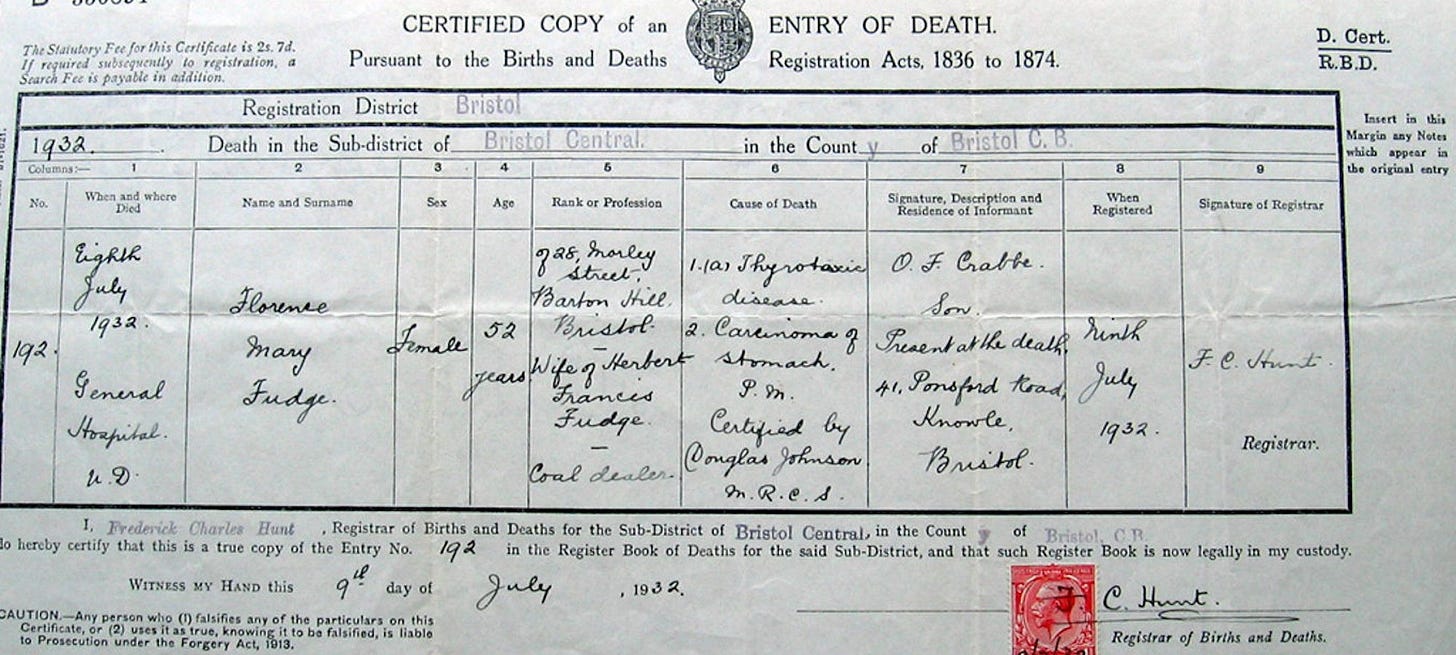 CERTIFIED COPY of an ENTRY OF DEATH.
Pursuant to the Births and Deaths Registration Acts, 1836 to 1874.
The Statutory Fee for this Certificate is 2s. 7d.
If required subsequently to registration, a
Search Fee is payable in addition.
D. Cert.
R.B.D.
Registration District Bristol
1932. Death in the Sub-district of Bristol Central. in the County of Bristol C.B.
Insert in this
Margin any Notes
which appear in
the original entry
Columns:— 1 2 3 4 5 6 7 8 9
No.
When and where
Died
Name and Surname
Sex
Age
Rank or Profession
Cause of Death
Signature, Description and
Residence of Informant
When
Registered
Signature of Registrar
192.
Eighth
July
1932.
General
Hospital.
U.D.
Florence
Mary
Fudge.
Female
52
years
of 28, Morley
Street,
Barton Hill.
Bristol.
—
Wife of Herbert
Francis
Fudge.
—
Coal dealer.
1.(a) Thyrotoxic
disease.
2. Carcinoma of
stomach.
P.M.
Certified by
Douglas Johnson
M.R.C.S.
O. F. Crabbe.
Son.
Present at the death,
41, Ponsford Road,
Knowle,
Bristol.
Ninth
July
1932.
F. C. Hunt.
Registrar.
I, Frederick Charles Hunt, Registrar of Births and Deaths for the Sub-District of Bristol Central, in the County of Bristol, C.B.
do hereby certify that this is a true copy of the Entry No. 192 in the Register Book of Deaths for the said Sub-District, and that such Register Book is now legally in my custody.
WITNESS MY HAND this 9th day of July, 1932.
CAUTION.—Any person who (1) falsifies any of the particulars on this
Certificate, or (2) uses it as true, knowing it to be falsified, is liable
to Prosecution under the Forgery Act, 1913.
C. Hunt.
Registrar of Births and Deaths.